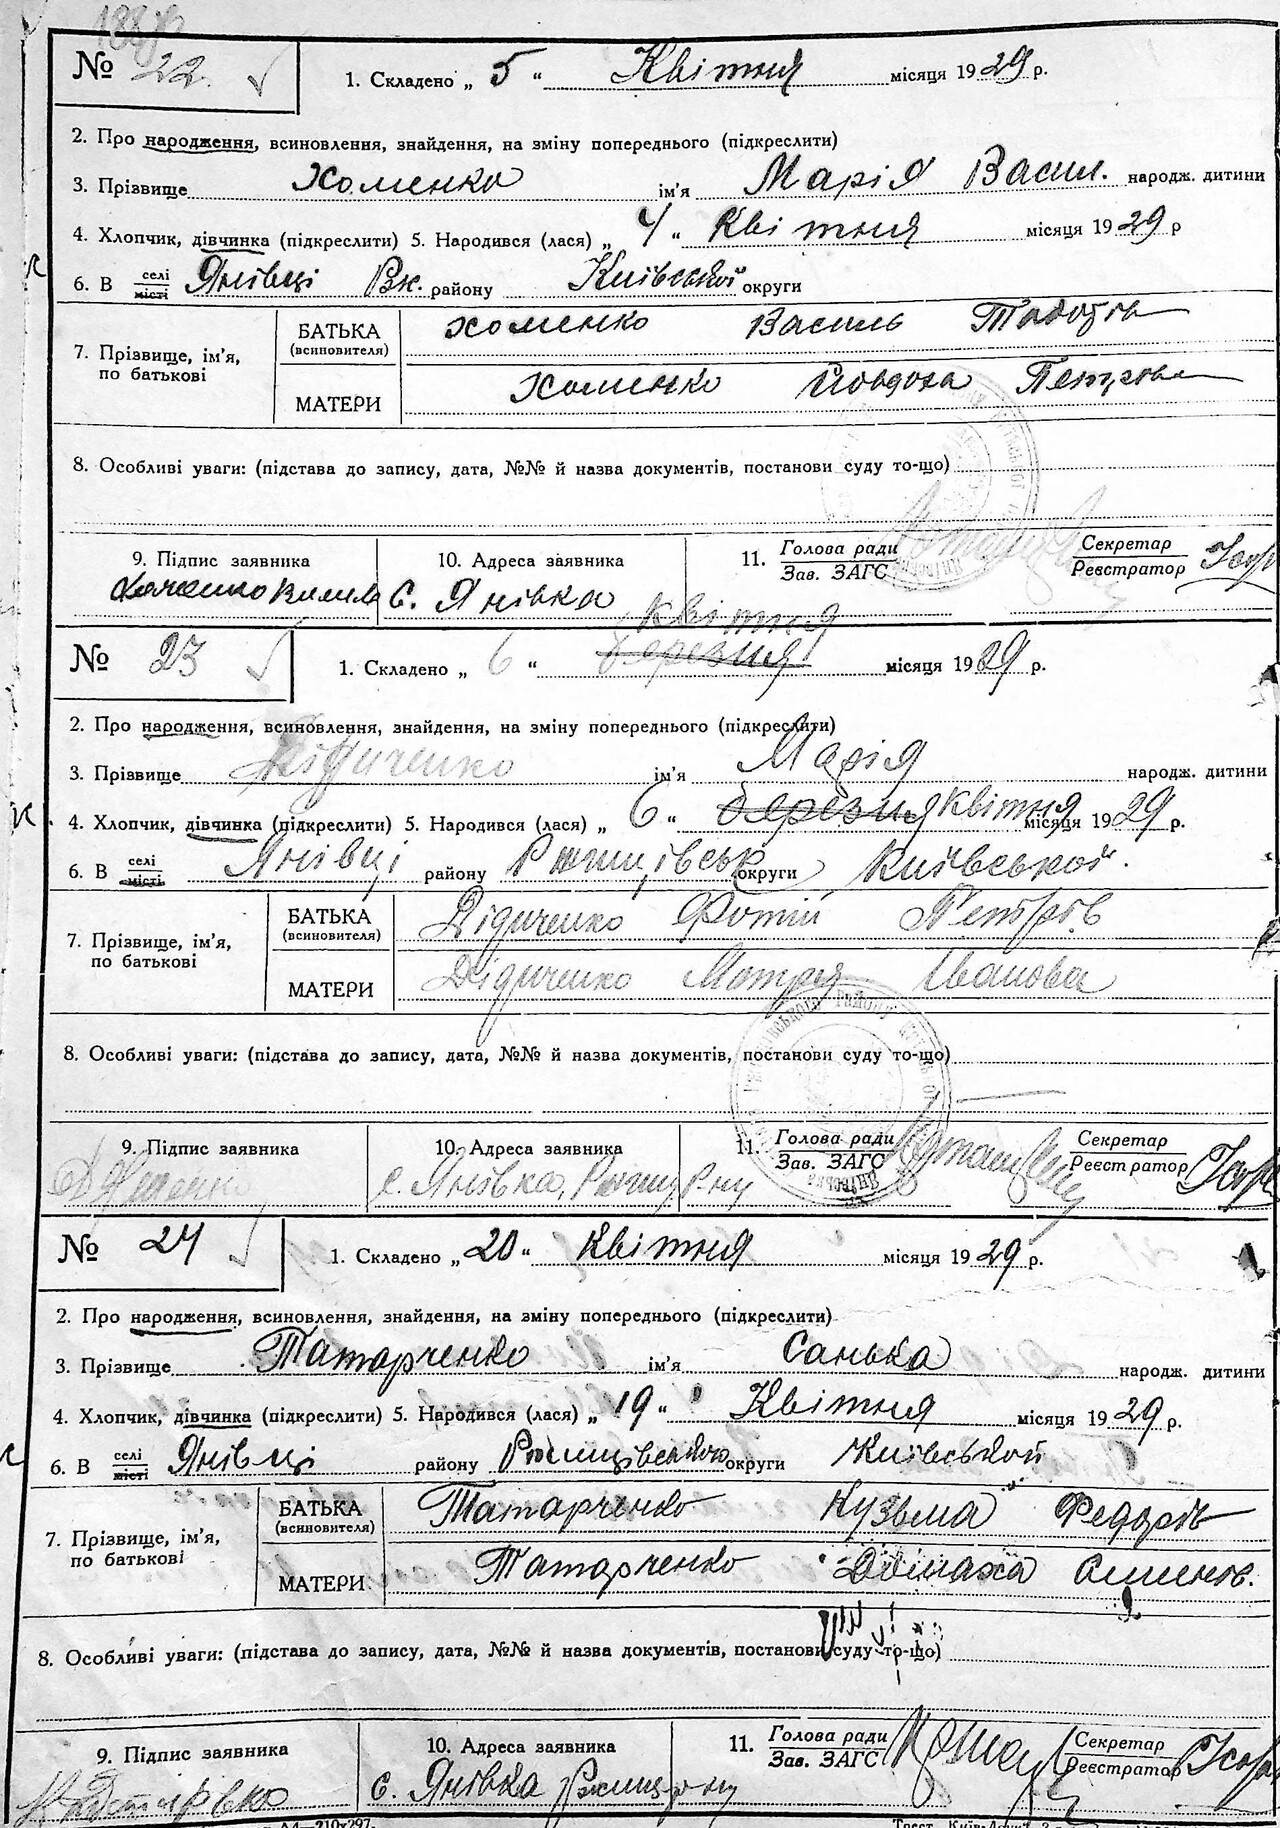 № 22. 1. Складено „ 5 “ Квітня місяця 1929 р.
2. Про народження, всиновлення, знайдення, на зміну попереднього (підкреслити)
3. Прізвище Хоменко ім'я Марія Васил. народж. дитини
4. Хлопчик, дівчинка (підкреслити) 5. Народився (лася) „ 4 “ Квітня місяця 1929 р
6. В селі місті Янівці Вк. району Київської округи
7. Прізвище, ім'я, по батькові
БАТЬКА (всиновителя) Хоменко Василь
МАТЕРИ Хоменко Йовдоха Петрова
8. Особливі уваги: (підстава до запису, дата, №№ й назва документів, постанови суду то-що)
9. Підпис заявника 10. Адреса заявника 11. Голова ради Зав. ЗАГС Секретар Реєстратор
с. Янівка
№ 23 1. Складено „ 6 “ березня Квітня місяця 1929 р.
2. Про народження, всиновлення, знайдення, на зміну попереднього (підкреслити)
3. Прізвище Дідиченко ім'я Марія народж. дитини
4. Хлопчик, дівчинка (підкреслити) 5. Народився (лася) „ 6 “ березня Квітня місяця 1929 р.
6. В селі місті Янівці району Ржищівськ округи Київської.
7. Прізвище, ім'я, по батькові
БАТЬКА (всиновителя) Дідиченко Фотій Петрів
МАТЕРИ Дідиченко Мотря Іванова
8. Особливі уваги: (підстава до запису, дата, №№ й назва документів, постанови суду то-що)
9. Підпис заявника 10. Адреса заявника 11. Голова ради Зав. ЗАГС Секретар Реєстратор
с. Янівка, Ржищ. Рну
№ 24 1. Складено „ 20 “ Квітня місяця 1929 р.
2. Про народження, всиновлення, знайдення, на зміну попереднього (підкреслити)
3. Прізвище Татарченко ім'я Санька народж. дитини
4. Хлопчик, дівчинка (підкреслити) 5. Народився (лася) „ 19 “ Квітня місяця 1929 р.
6. В селі місті Янівці району Ржищівського округи Київській
7. Прізвище, ім'я, по батькові
БАТЬКА (всиновителя) Татарченко Кузьма Федорів
МАТЕРИ Татарченко Домаха
8. Особливі уваги: (підстава до запису, дата, №№ й назва документів, постанови суду то-що)
9. Підпис заявника 10. Адреса заявника 11. Голова ради Зав. ЗАГС Секретар Реєстратор
с. Янівка Ржищ. рну